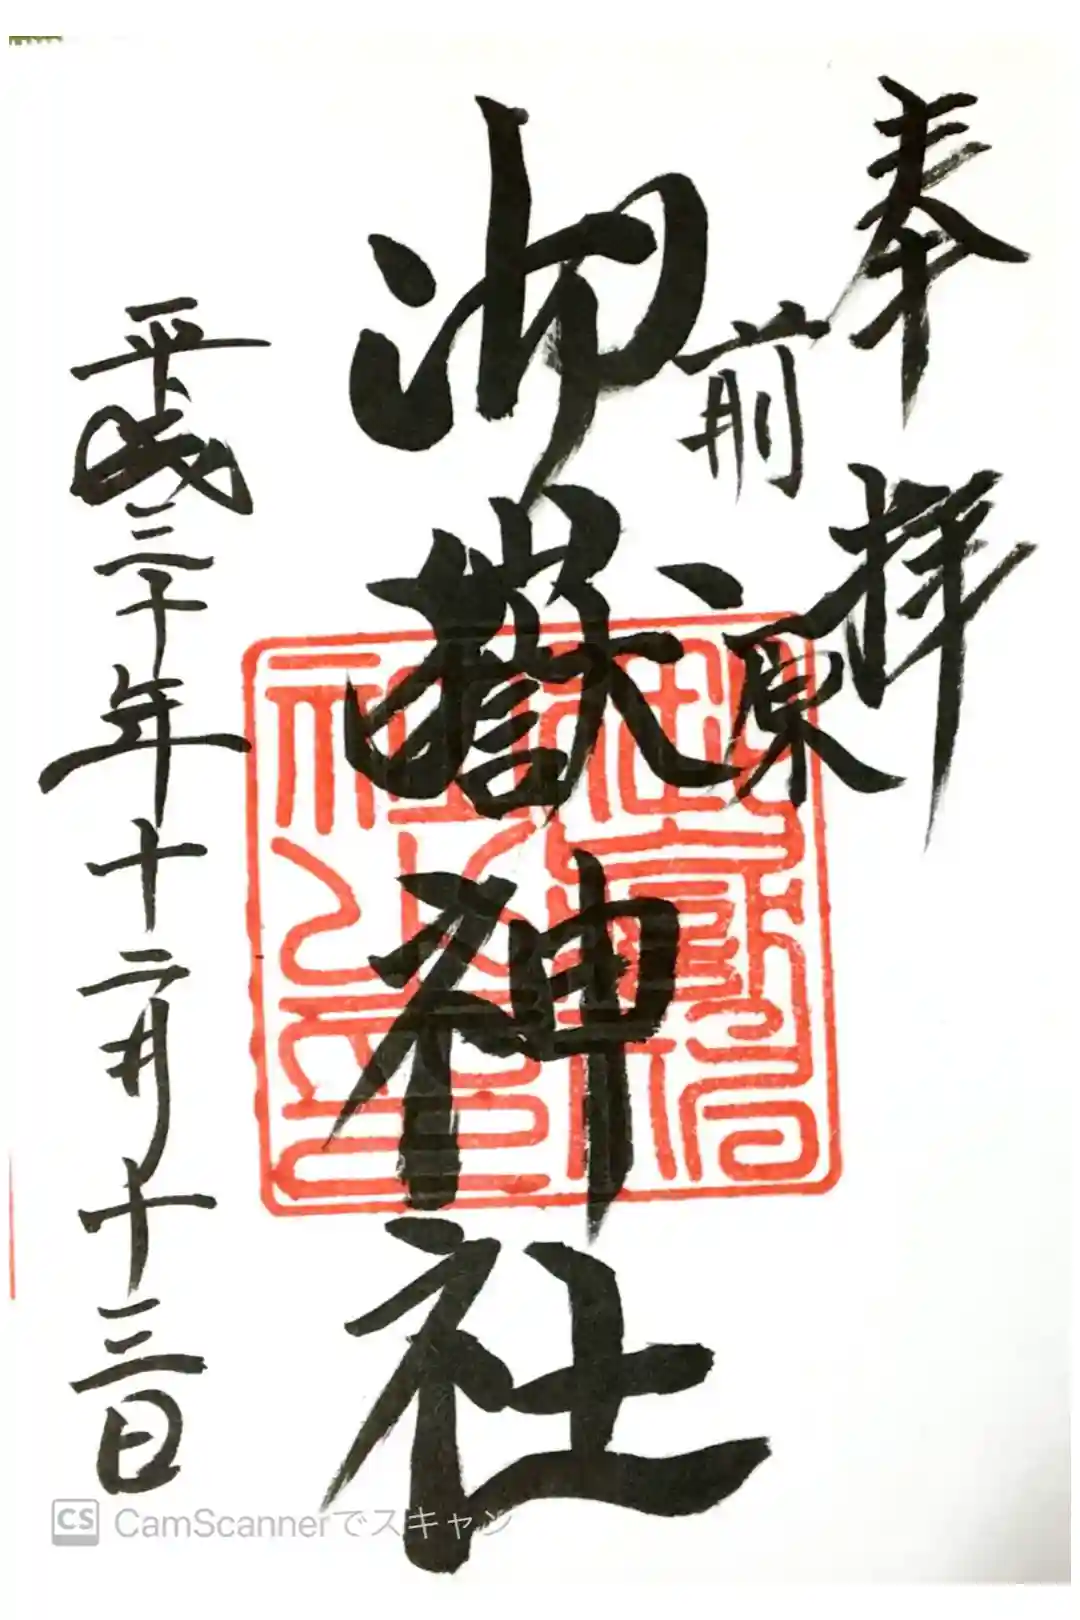 奉拝
前原
御嶽神社
平成三十年十二月十三日
CS CamScannerでスキャン